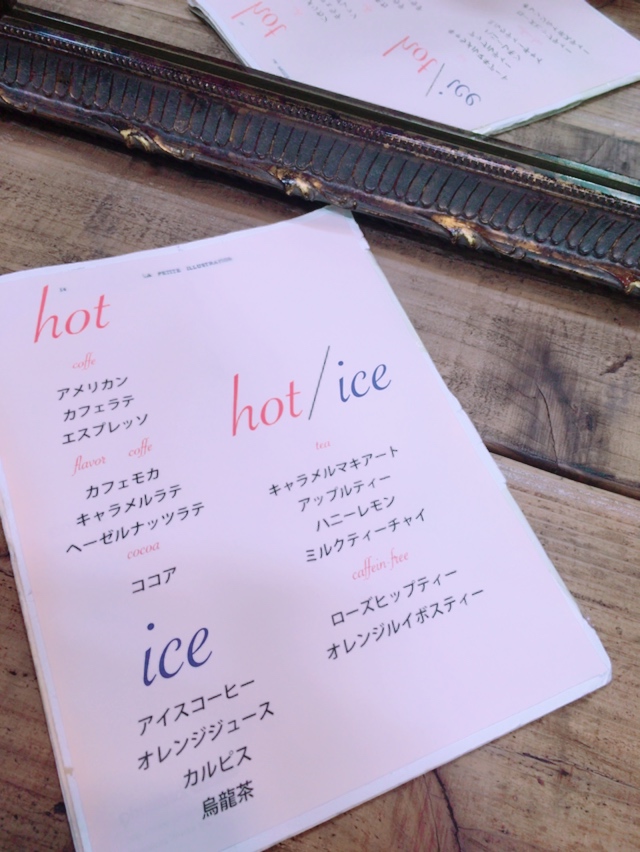 LA PETITE ILLUSTRATION
hot
coffe
アメリカン
カフェラテ
エスプレッソ
flavor coffe
カフェモカ
キャラメルラテ
ヘーゼルナッツラテ
cocoa
ココア
ice
アイスコーヒー
オレンジジュース
カルピス
烏龍茶
hot/ice
tea
キャラメルマキアート
アップルティー
ハニーレモン
ミルクティーチャイ
caffein-free
ローズヒップティー
オレンジルイボスティー